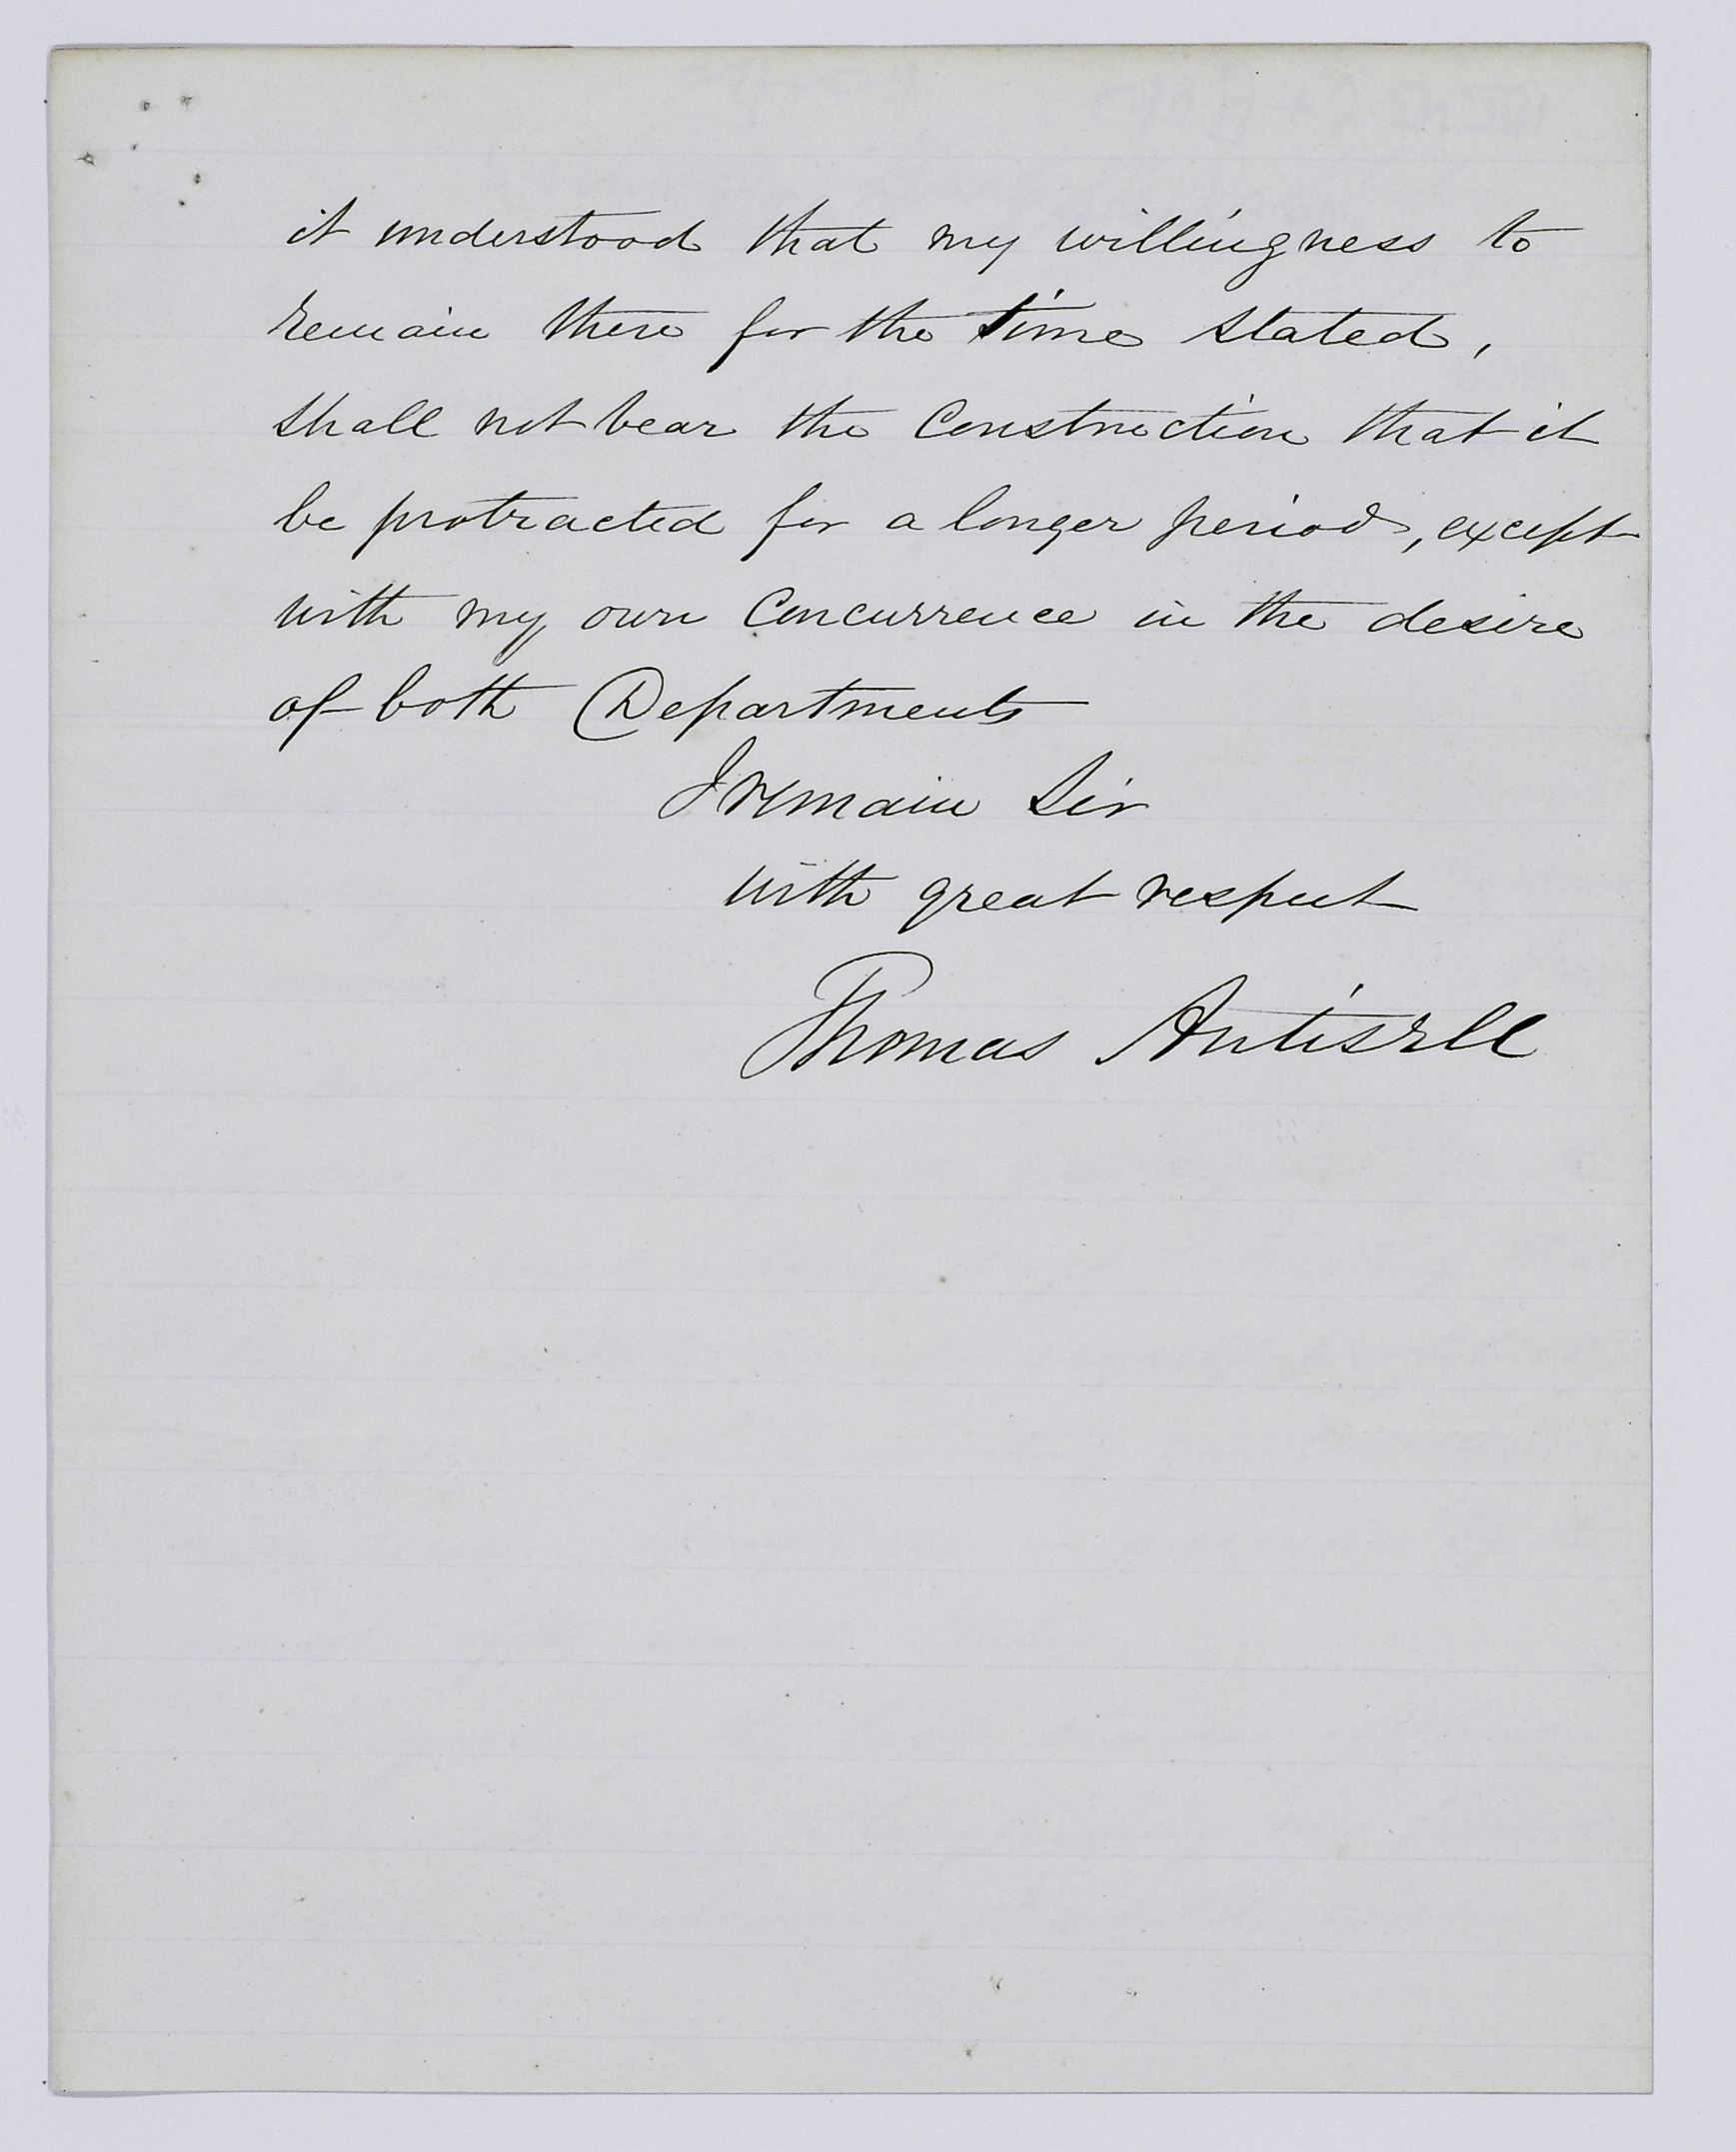 it understood that my willingness to
remain there for the time stated,
shall not bear the Construction that it
be protracted for a longer period, except
with my own Concurrence in the desire
of both Departments
I remain Sir
with great respect
Thomas Antisell